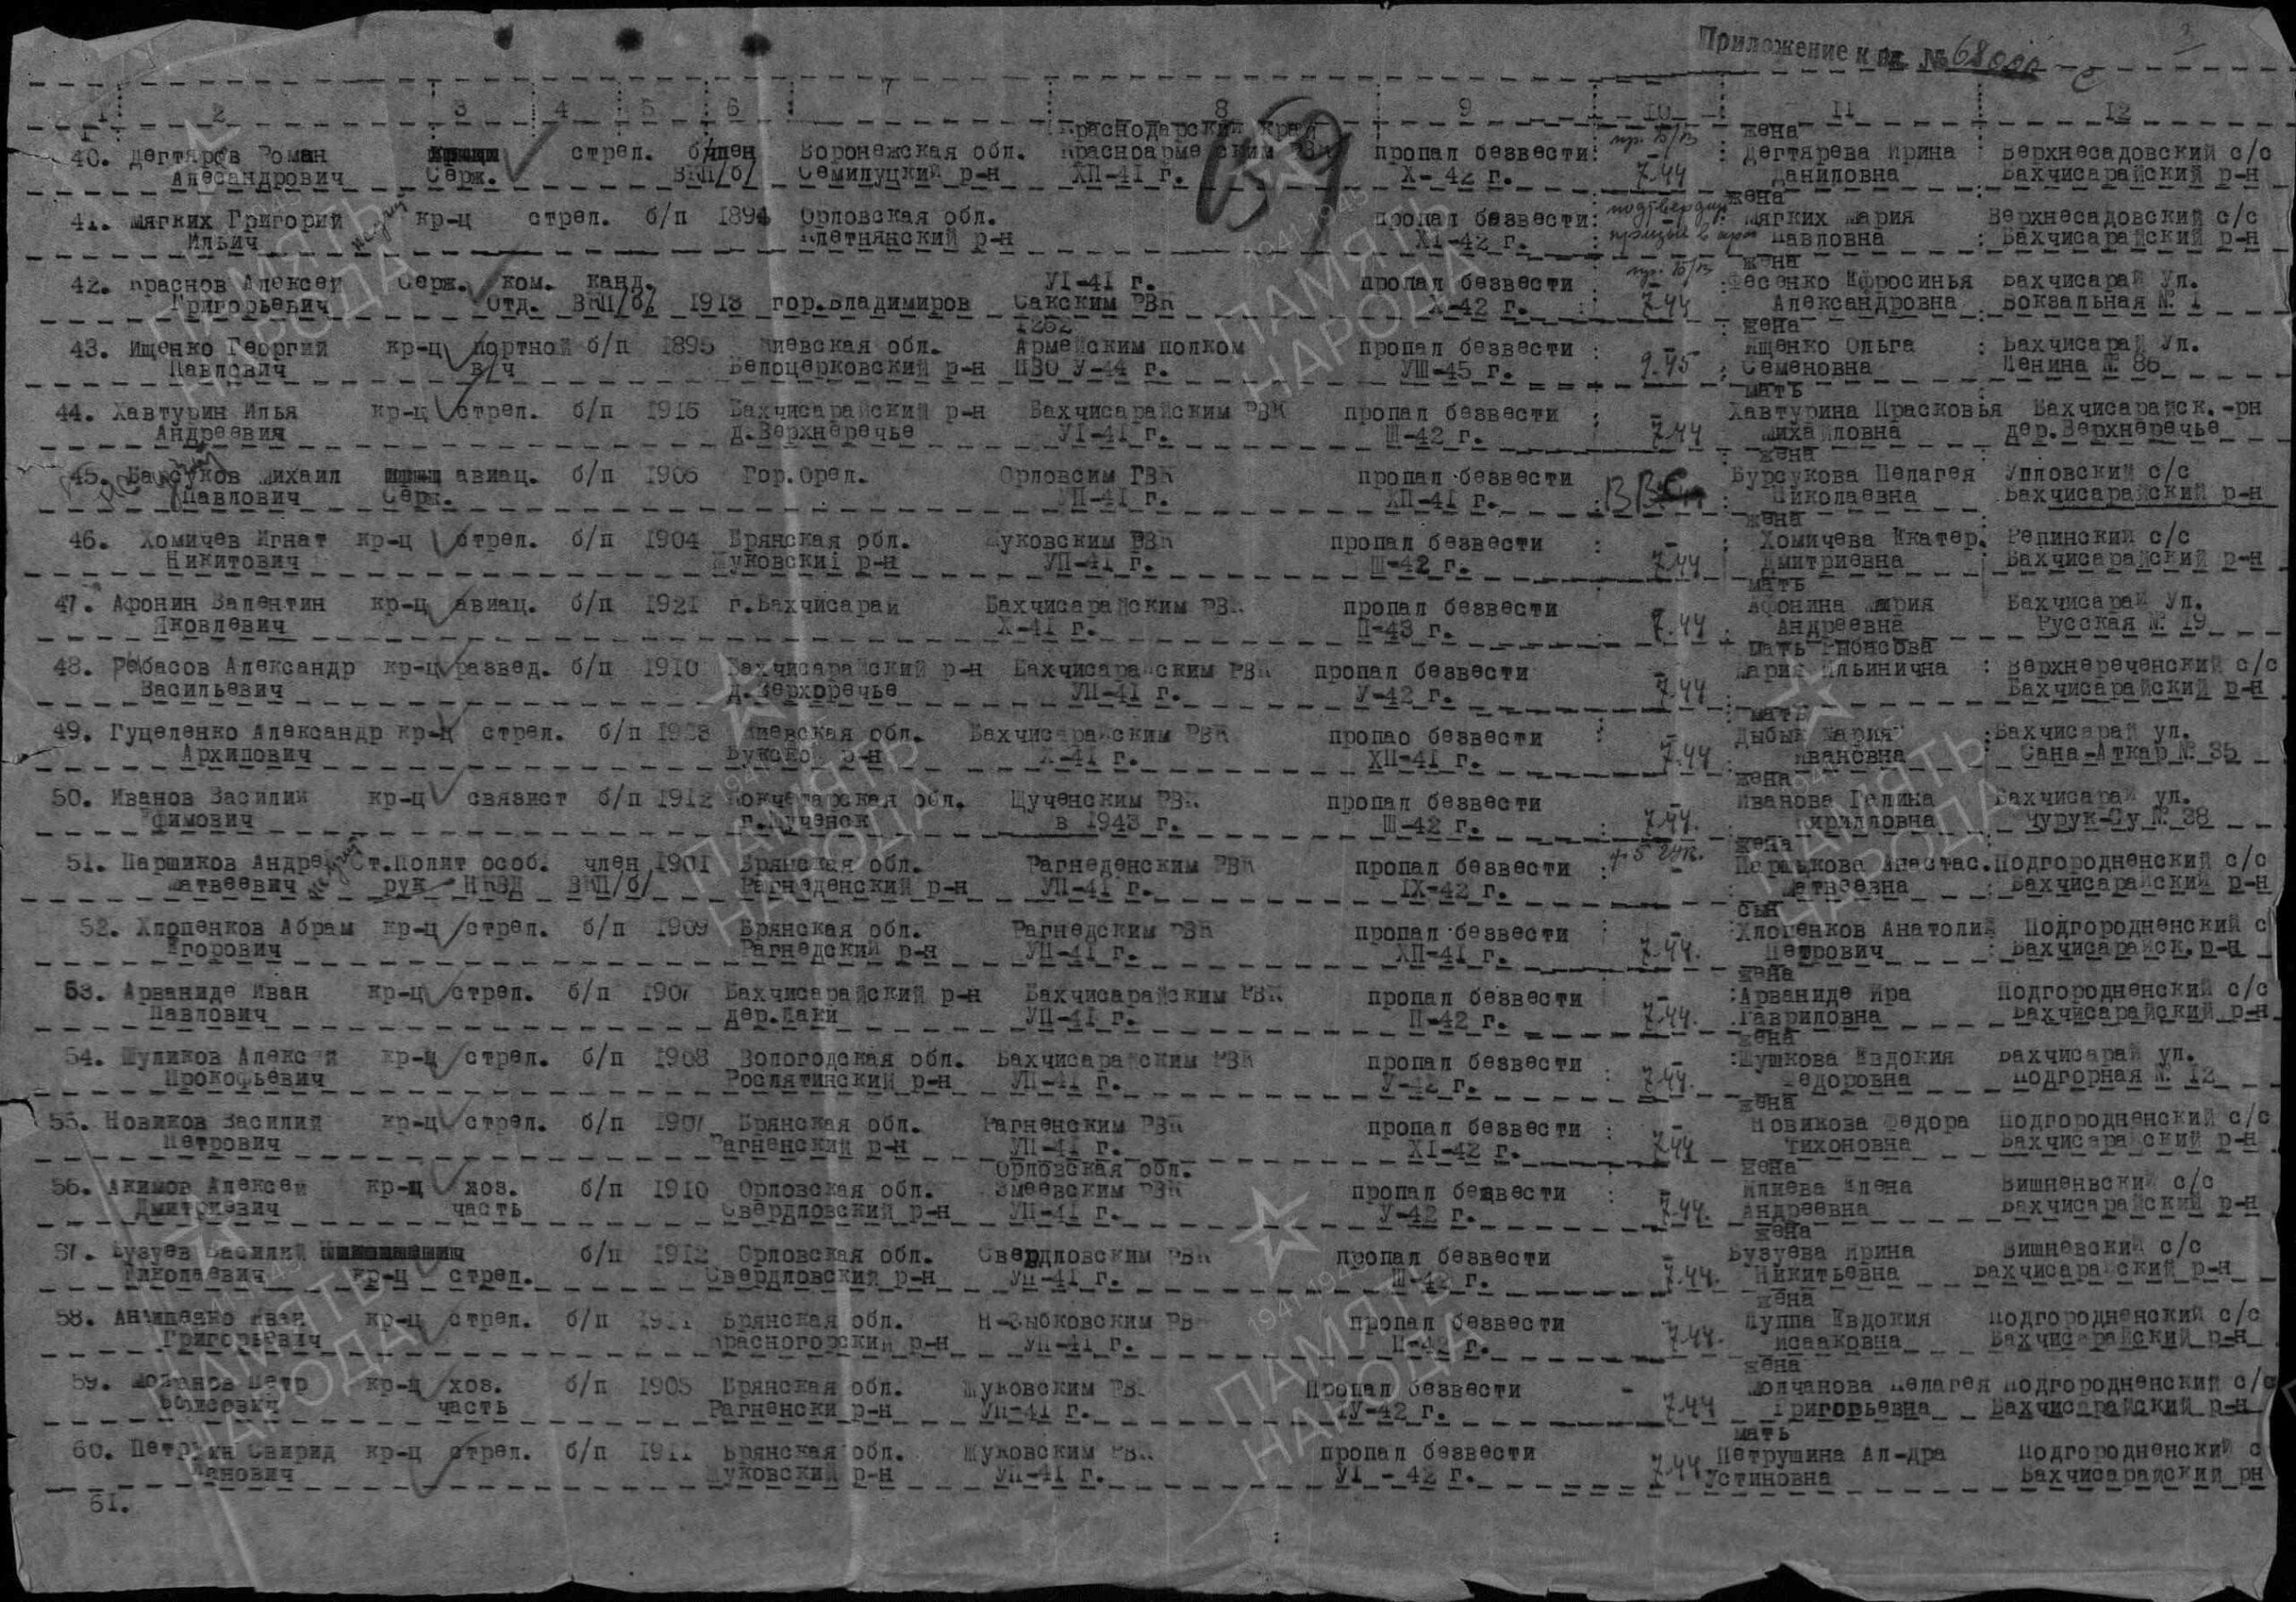 Приложение к вх № 68000 с
3
1 2 3 4 5 6 7 8 9 10 11 12
59
Краснодарский край жена
40. Дегтяров Роман стрел. б/член Воронежская обл. Красноармейским РВК пропал безвести Дегтярева Ирина Верхнесадовский с/с
Алесандрович Серж. ВКП/б/ Семилуцкий р-н ХП-41 г. Х-42 г. 7.44 Даниловна Бахчисарайский р-н
жена
41. Мягких Григорий кр-ц стрел. б/п 1894 Орловская обл. пропал безвести Мягких Мария Верхнесадовский с/с
Ильич Клетнянский р-н ХI-42 г. Павловна Бахчисарайский р-н
жена
42. Краснов Алексей Серж. ком. канд. УI-41 г. пропал безвести Фесенко Ефросинья Бахчисарай Ул.
Григорьевич Отд. ВКП/б/ 1913 гор.Владимиров Сакским РВК Х-42 г. 7.44 Александровна Вокзальная № 1
1262 жена
43. Ищенко Георгий кр-ц портной б/п 1895 Киевская обл. Армейским полком пропал безвести Ищенко Ольга Бахчисарай Ул.
Павлович в/ч Белоцерковский р-н ПВО У-44 г. УШ-45 г. 9.45 Семеновна Ленина № 86
мать
44. Хавтурин Илья кр-ц стрел. б/п 1915 Бахчисарайский р-н Бахчисарайским РВК пропал безвести Хавтурина Прасковья Бахчисарайск.-рн
Андреевия д.Верхнеречье УI-41 г. Ш-42 г. 7.44 Михайловна дер.Верхнеречье
жена
45. Барсуков Михаил авиац. б/п 1906 Гор.Орел. Орловсим ГВК пропал безвести ВВС Бурсукова Пелагея Улловский с/с
Павлович Серж. УП-41 г. ХП-41 г. Николаевна Бахчисарайский р-н
жена
46. Хомичев Игнат кр-ц стрел. б/п 1904 Брянская обл. Жуковским РВК пропал безвести Хомичева Екатер. Репинский с/с
Никитович Жуковский р-н УП-41 г. Ш-42 г. 7.44 Дмитриевна Бахчисарайский р-н
мать
47. Афонин Валентин кр-ц авиац. б/п 1921 г.Бахчисарай Бахчисарайским РВК пропал безвести Афонина Мария Бахчисарай Ул.
Яковлевич Х-41 г. П-43 г. 7.44 Андреевна Русская № 19
мать Рыбасова
48. Рыбасов Александр кр-ц развед. б/п 1910 Бахчисарайский р-н Бахчисарайским РВК пропал безвести Мария Ильинична Верхнереченский с/с
Васильевич д.Верхоречье УП-41 г. У-42 г. 7.44 Бахчисарайский р-н
мать
49. Гуцеленко Александр кр-ц стрел. б/п 1923 Киевская обл. Бахчисарайским РВК пропао безвести Дыбый Мария Бахчисарай ул.
Архипович Букской р-н Х-41 г. ХП-41 г. 7.44 Ивановна Сана-Аткар № 35
жена
50. Иванов Василий кр-ц связист б/п 1912 Кокчетарская обл. Щученским РВК пропал безвести Иванова Галина Бахчисарай ул.
Ефимович г.Щученск в 1943 г. Ш-42 г. 7.44. Кирилловна Чурук-Су № 38
жена
51. Паршиков Андрей Ст.Полит особ. член 1901 Брянская обл. Рагнеденским РВК пропал безвести Паршькова Анастас. Подгородненский с/с
Матвеевич рук НКВД ВКП/б/ Рагнеденский р-н УП-41 г. IX-42 г. Матвеевна Бахчисарайский р-н
сын
52. Хлопенков Абрам кр-ц стрел. б/п 1909 Брянская обл. Рагнедским РВК пропал безвести Хлопенков Анатолий Подгородненский с
Егорович Рагнедский р-н УП-41 г. ХП-41 г. 7.44. Петрович Бахчисарайск. р-н
жена
53. Арваниде Иван кр-ц стрел. б/п 1907 Бахчисарайский р-н Бахчисарайским РВК пропал безвести Арваниде Ира Подгородненский с/с
Павлович дер.Лаки УП-41 г. П-42 г. 7.44. Гавриловна Бахчисарайский р-н
жена
54. Шуликов Алексей кр-ц стрел. б/п 1908 Вологодская обл. Бахчисарайским РВК пропал безвести Шушкова Евдокия Бахчисарай ул.
Прокофьевич Рослятинский р-н УП-41 г. У-42 г. 7.44. Федоровна Подгорная № 12
жена
55. Новиков Василий кр-ц стрел. б/п 1907 Брянская обл. Рагненским РВК пропал безвести Новикова Федора Подгородненский с/с
Петрович Рагненский р-н УП-41 г. ХI-42 г. 7.44 Тихоновна Бахчисарайский р-н
Орловская обл. жена
56. Акимов Алексей кр-ц хоз. б/п 1910 Орловская обл. Змеевским РВК пропал безвести Илиева Елена Вишненвский с/с
Дмитриевич часть Свердловский р-н УП-41 г. У-42 г. 7.44. Андреевна Бахчисарайский р-н
жена
57. Бузуев Василий б/п 1912 Орловская обл. Свердловским РВК пропал безвести Бузуева Ирина Вишневский с/с
Николаевич кр-ц стрел. Свердловский р-н УП-41 г. Ш-42 г. 7.44. Никитьевна Бахчисарайский р-н
жена
58. Антипенко Иван кр-ц стрел. б/п Брянская обл. Н-Зыбковским РВ пропал безвести Луппа Евдокия Подгородненский с/с
Григорьевич Красногорский р-н УП-41 г. П-42 г. 7.44. Исааковна Бахчисарайский р-н
жена
59. Петр кр-ц хоз. б/п 1905 Брянская обл. Жуковским РВК Пропал безвести Молчанова Пелагея Подгородненский с/с
Борисович часть Рагненски р-н УП-41 г. 1У-42 г. 7.44 Григорьевна Бахчисарайский р-н
мать
60. Петрушин Свирид кр-ц стрел. б/п 1911 Брянская обл. Жуковским РВК пропал безвести Петрушина Ал-дра Подгородненский с
Панович Жуковский р-н УП-41 г. УI - 42 г. 7.44 Устиновна Бахчисарайский рн
61.
1941-1945
ПАМЯТЬ
НАРОДА